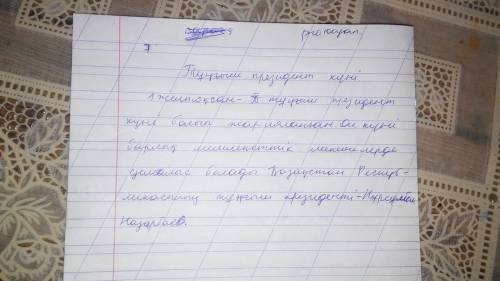 Тұңғыш президент күні
1 желтоқсан - Тұңғыш президент
күні болып жарияланған Ол күні
барлық мемлекеттік мекемелерде
демалыс болады Қазақстан Респуб-
ликасының тұңғыш президенті - Нұрсұлтан
Назарбаев.